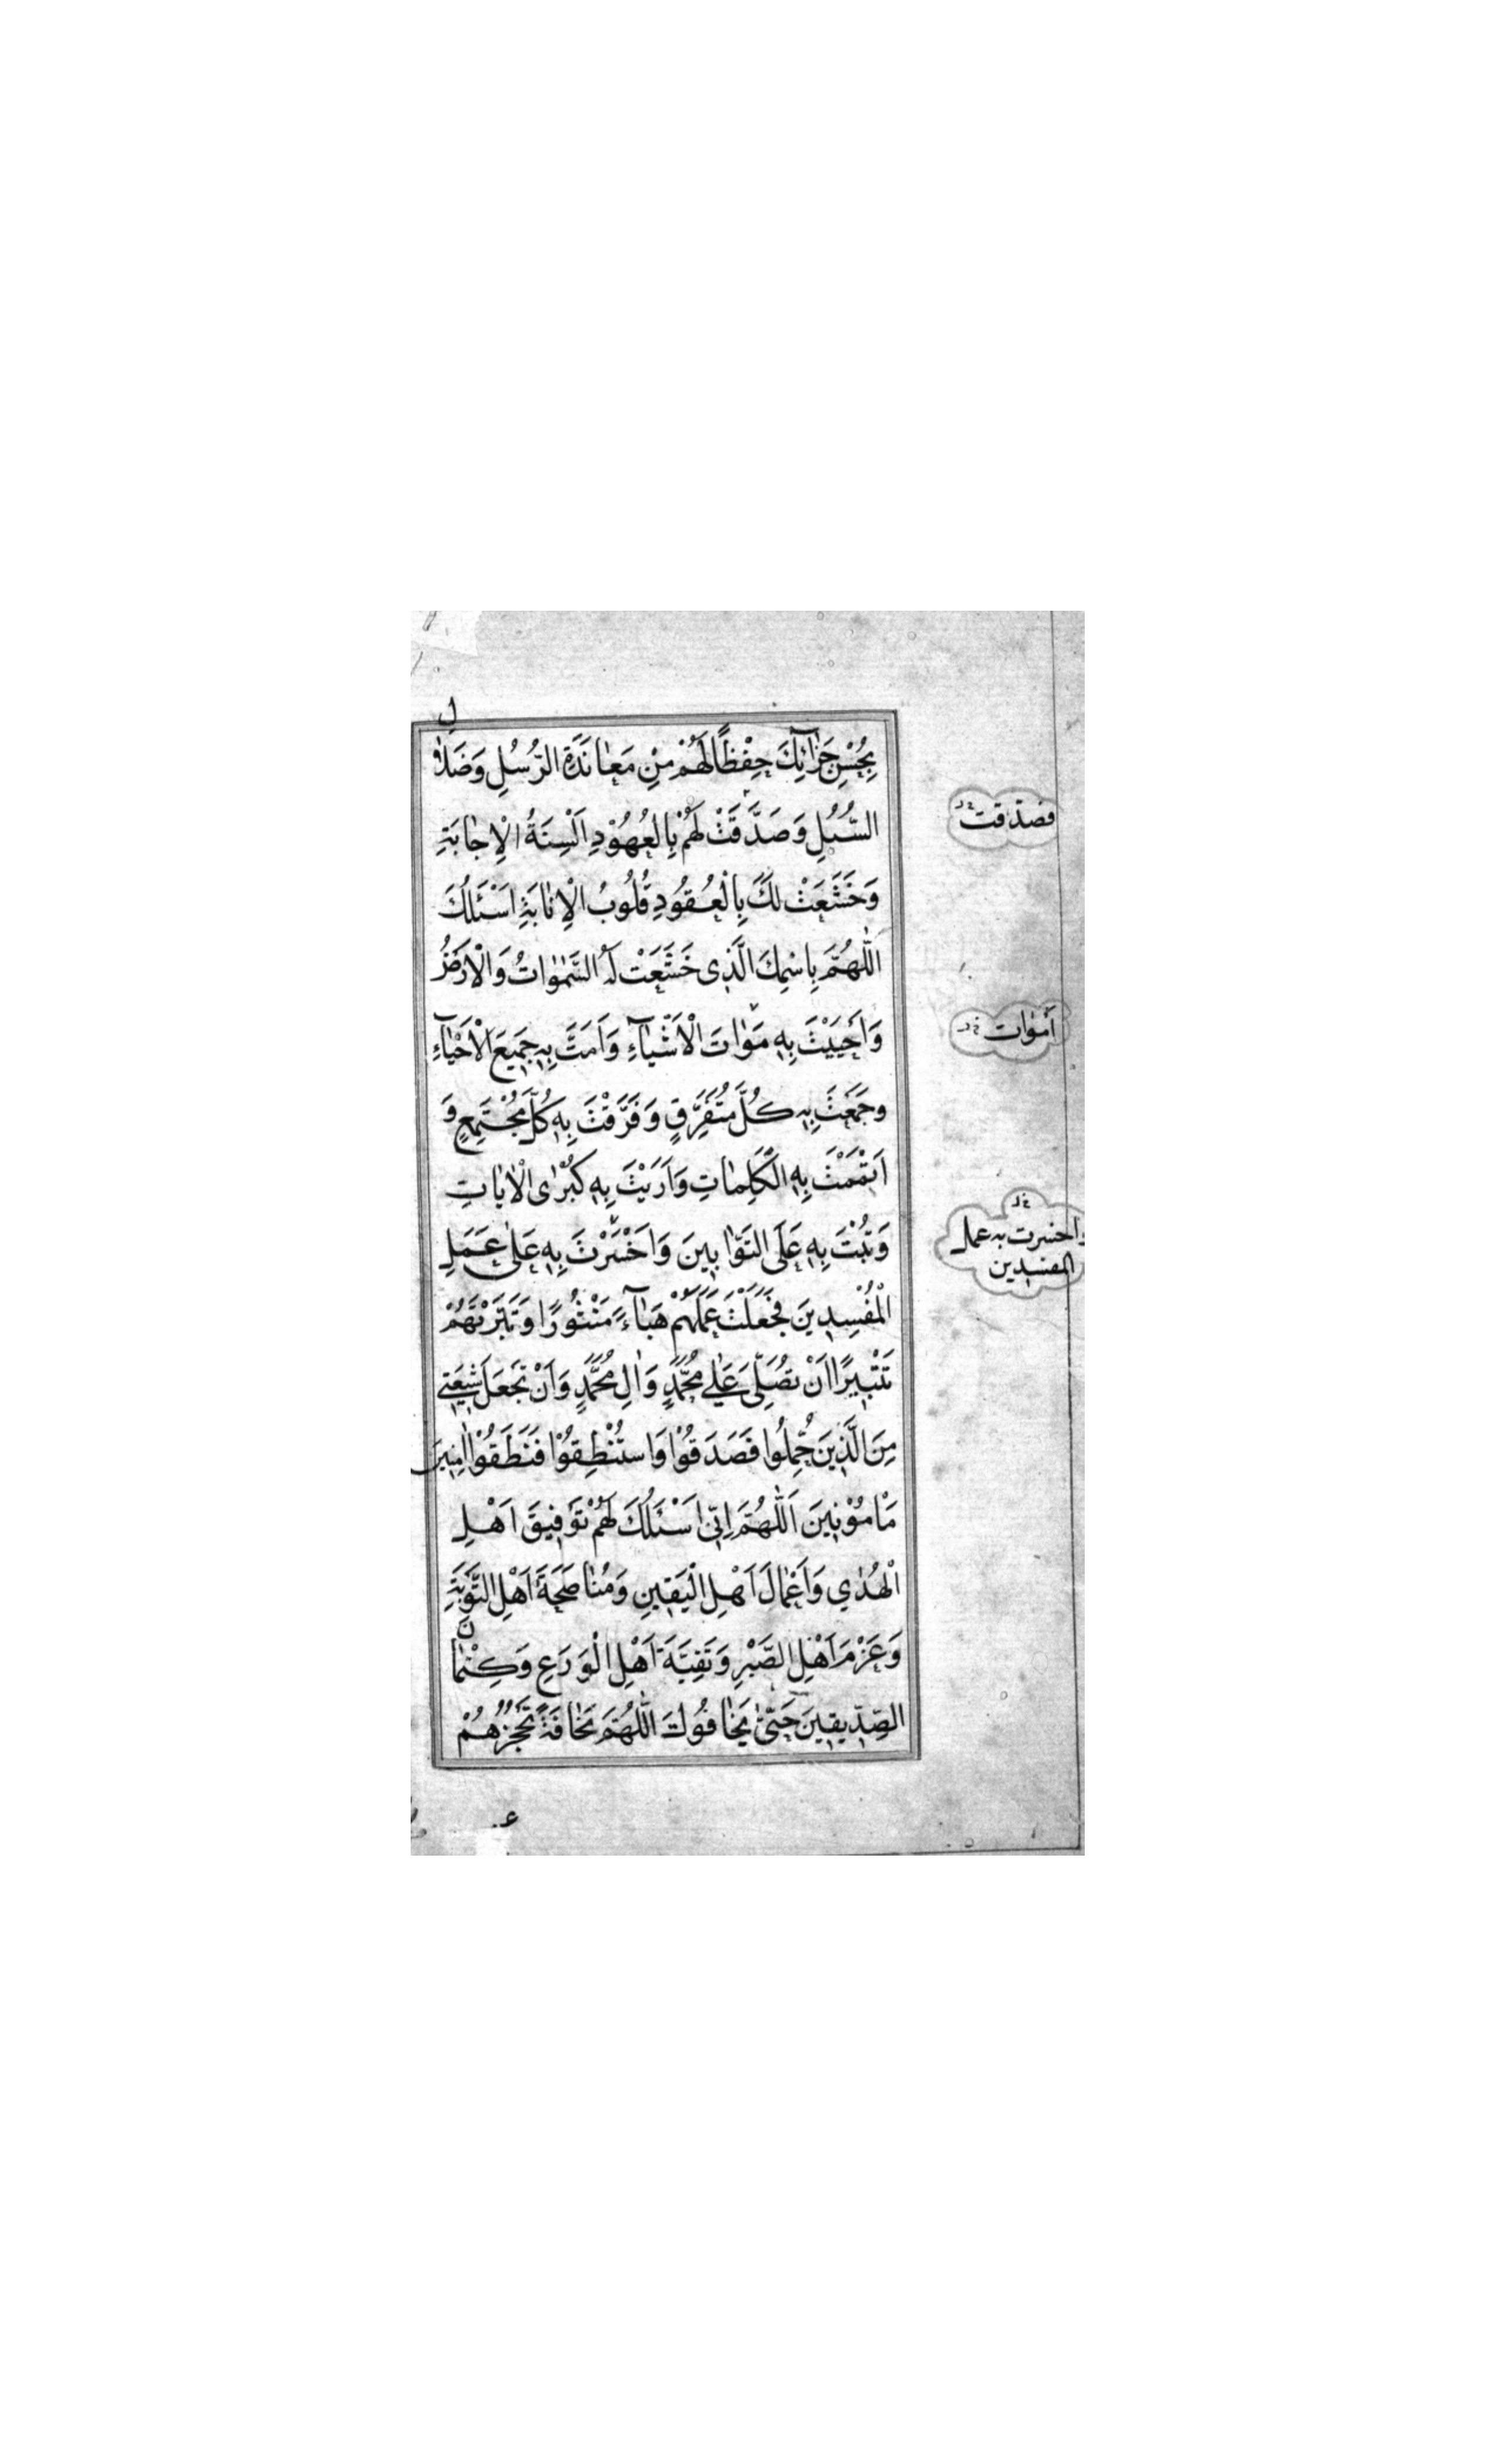 بِحُسْنِ جَزٰآئِكَ حِفْظًا لَهُمْ مِنْ مَعٰانَدَةِ الرُّسُلِ وَضَلٰال
السُّبُلِ وَصَدَّقَتْ لَهُمْ بِالْعُهُوْدِ اَلْسِنَةُ الْاِجٰابَةِ
فصدّقت خ‌ل
وَخَشَعَتْ لَكَ بِالْعُقُودِ قُلُوبُ الْاِنٰابَةِ اَسْئَلُكَ
اَللّٰهُمَّ بِاسْمِكَ الَّذِى خَشَعَتْ لَهُ السَّمٰوٰاتُ وَالْاَرْضُ
وَاَحْيَيْتَ بِهِ مَوٰاتَ الْاَشْيٰآءِ وَاَمَتَّ بِهِ جَمِيعَ الْاَحْيٰآءِ
اَمْوٰات خ‌ل
وجَمَعْتَ بِهِ كُلَّ مُتَفَرِّقٍ وَفَرَّقْتَ بِهِ كُلَّ مُجْتَمِعٍ وَ
اَتْمَمْتَ بِهِ الْكَلِمٰاتِ وَاَرَيْتَ بِهِ كُبْرٰى الْاٰيٰاتِ
وَتُبْتَ بِهِ عَلَى التَّوّٰابِينَ وَاَخْسَرْتَ بِهِ عَلىٰ عَمَلِ
خ‌ل
واخسرت به عمل
المفسدين
الْمُفْسِدِينَ فَجَعَلْتَ عَمَلَهُمْ هَبٰآءً مَنْثُورًا وَتَبَّرْتَهُمْ
تَتْبِيرًا اَنْ تُصَلِّىَ عَلٰى مُحَمَّدٍ وَاٰلِ مُحَمَّدٍ وَاَنْ تَجْعَلَ شِيعَتِى
مِنَ الَّذِينَ حُمِّلُوا فَصَدَقُوْا وَاسْتُنْطِقُوْا فَنَطَقُوْا اٰمِنِينَ
مَاْمُوْنِينَ اَللّٰهُمَّ اِنِّى اَسْئَلُكَ لَهُمْ تَوْفِيقَ اَهْلِ
الْهُدٰي وَاَعْمٰالَ اَهْلِ الْيَقِينِ وَمُنٰاصَحَةَ اَهْلِ التَّوْبَةِ
وَعَزْمَ اَهْلِ الصَّبْرِ وَتَقِيَّةَ اَهْلِ الْوَرَعِ وَكِتْمٰان
الصِّدِّيقِينَ حَتّىٰ يَخٰافُوكَ اللّٰهُمَّ مَخٰافَةً تَحْجُزُهُمْ